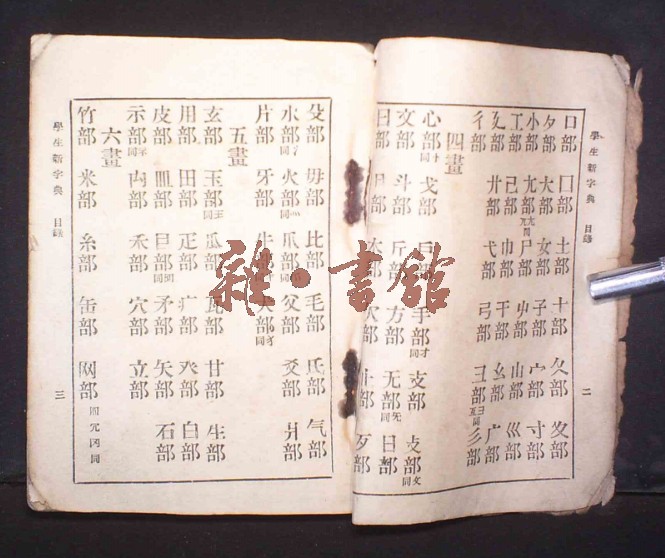 學生新字典 目錄 二
口部 囗部 土部 士部 夂部 夊部
夕部 大部 女部 子部 宀部 寸部
小部 尢部 尸部 屮部 山部 巛部
工部 己部 巾部 干部 幺部 广部
廴部 廾部 弋部 弓部 彐部 彡部
彳部
四畫
心部忄同 戈部 戶部 手部才同 支部 攴部攵同
文部 斗部 斤部 方部 无部旡同 日部
曰部 月部 木部 欠部 止部 歹部
殳部 毋部 比部 毛部 氏部 气部
水部氵同 火部灬同 爪部 父部 爻部 爿部
片部 牙部 牛部 犬部犭同
五畫
玄部 玉部王同 瓜部 瓦部 甘部 生部
用部 田部 疋部 疒部 癶部 白部
皮部 皿部 目部 矛部 矢部 石部
示部 禸部 禾部 穴部 立部
六畫
竹部 米部 糸部 缶部 网部
學生新字典 目錄 三
雜·書館